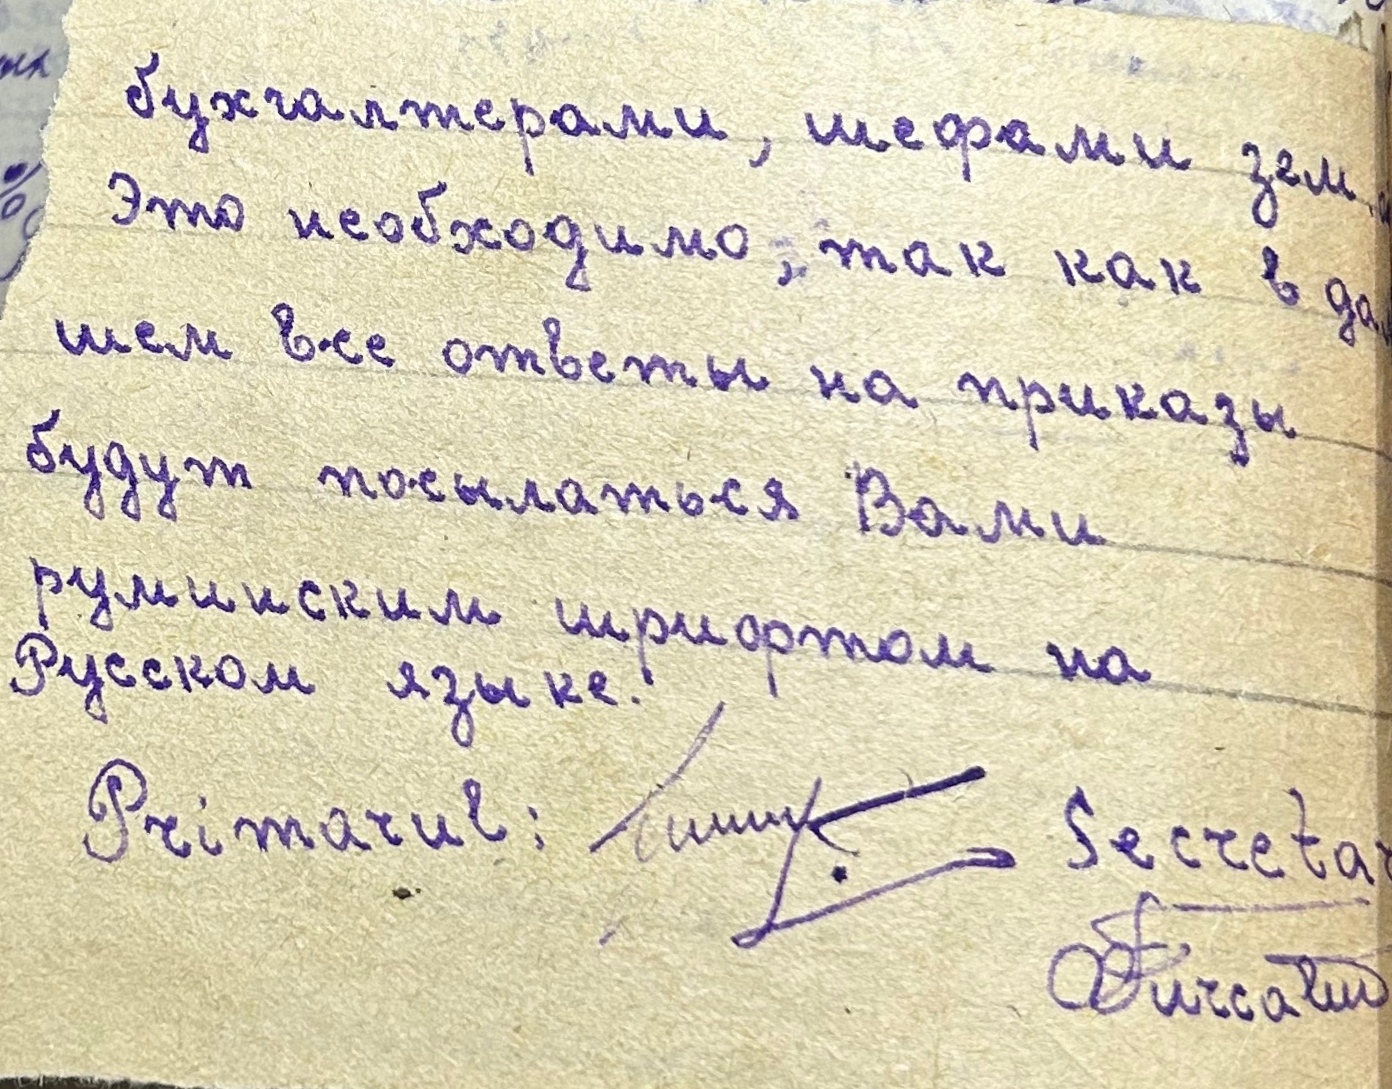 бухгалтерами, шефами зем.
Это необходимо, так как в дал
шем все ответы на приказы
будут посылаться Вами
румынским шрифтом на
Русском языке.
Primarul:
Secretar